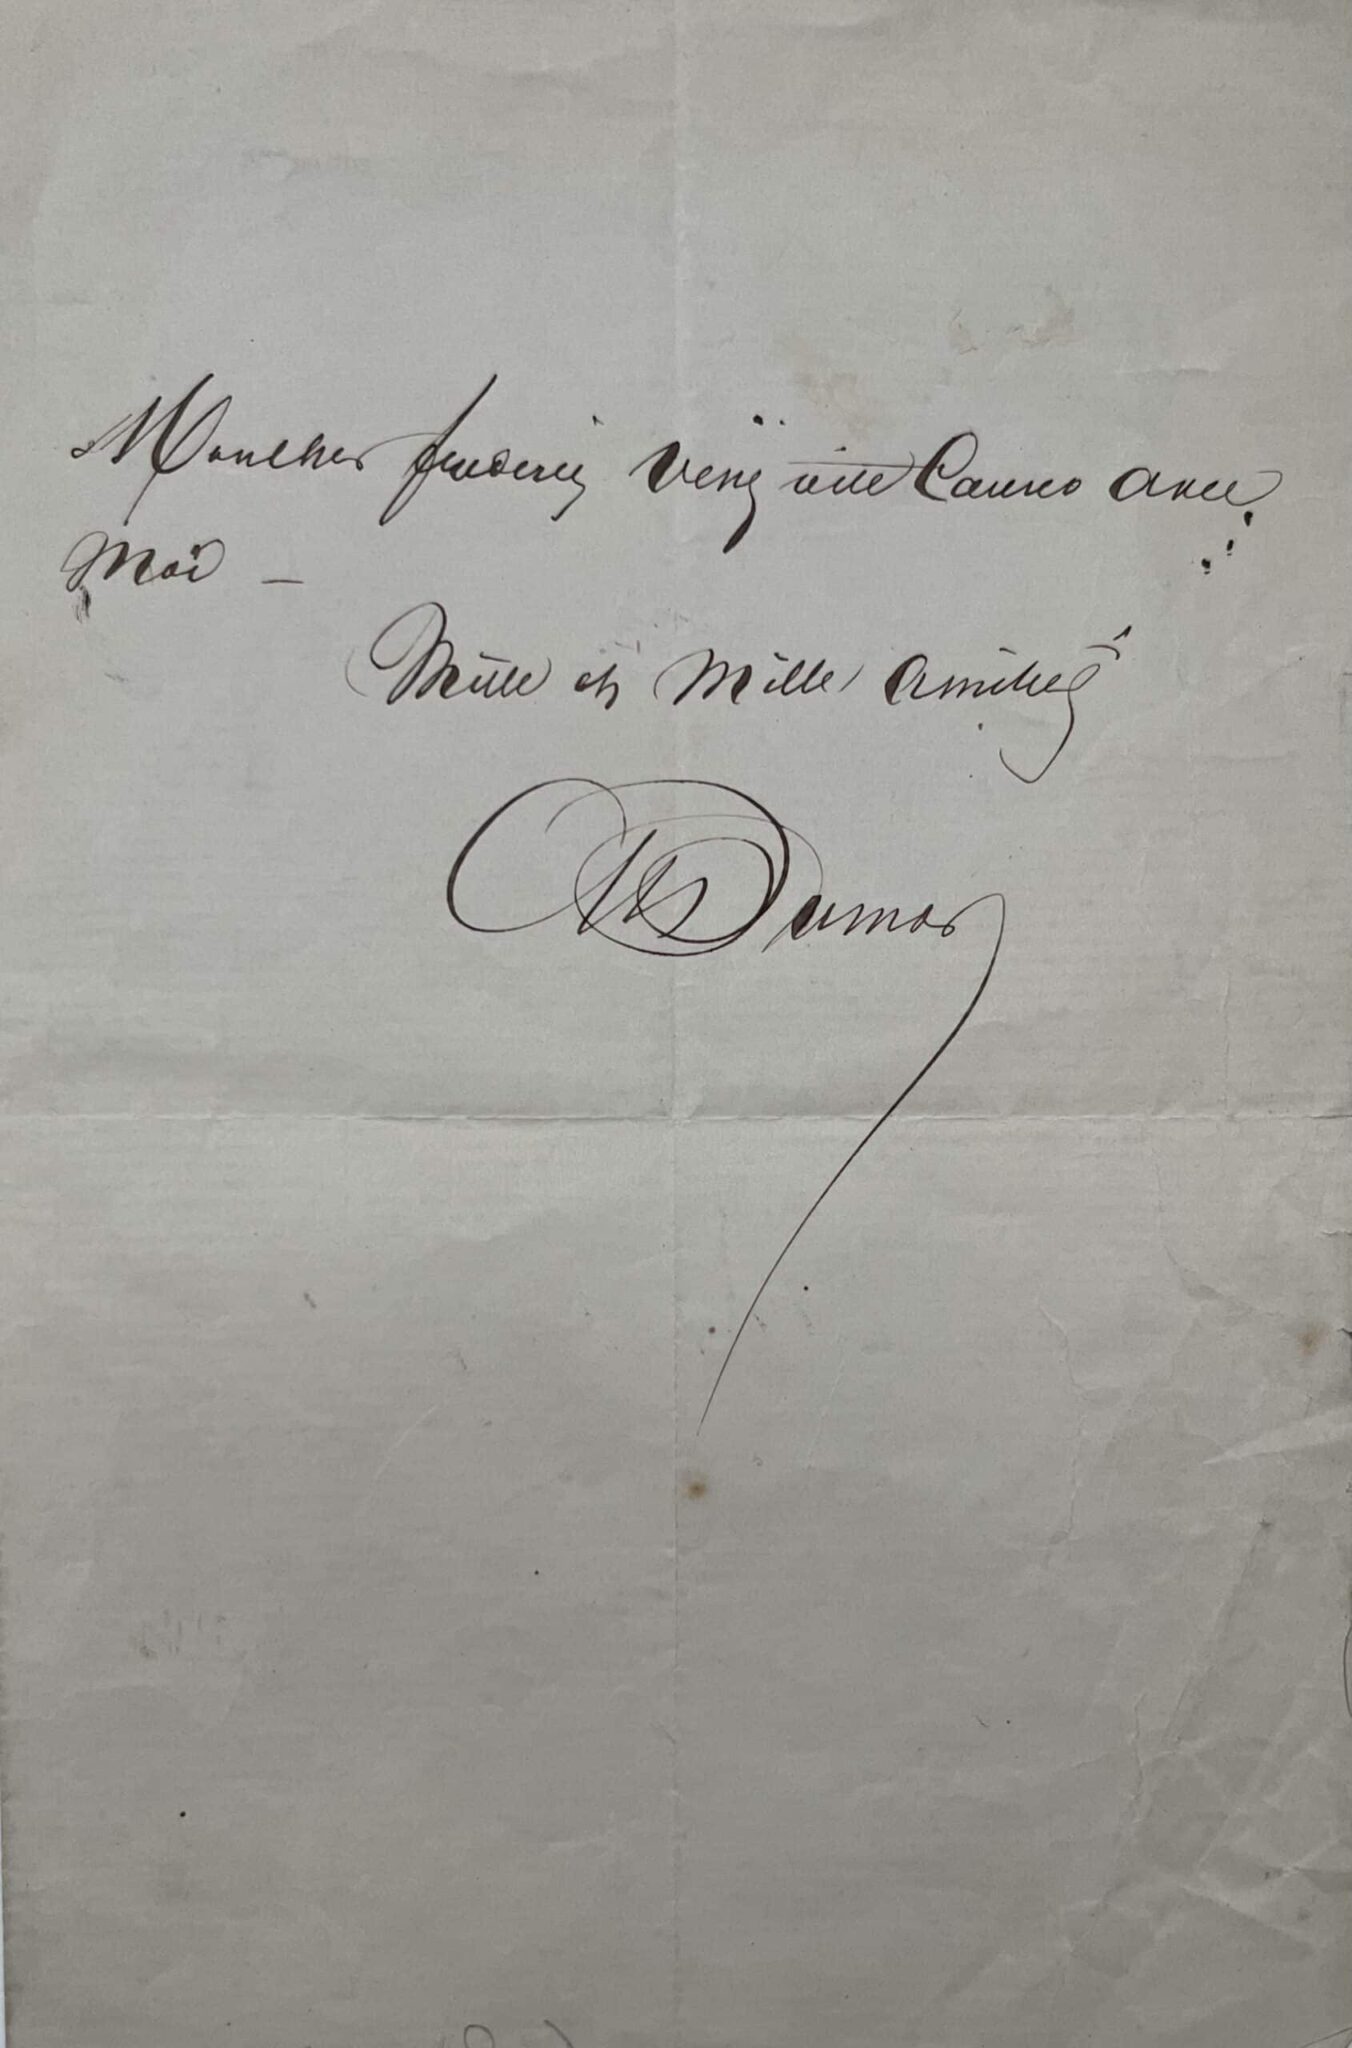 Mon cher frederic Venez vite Causer avec
Moi –
Mille et Mille amitiés
Dumas